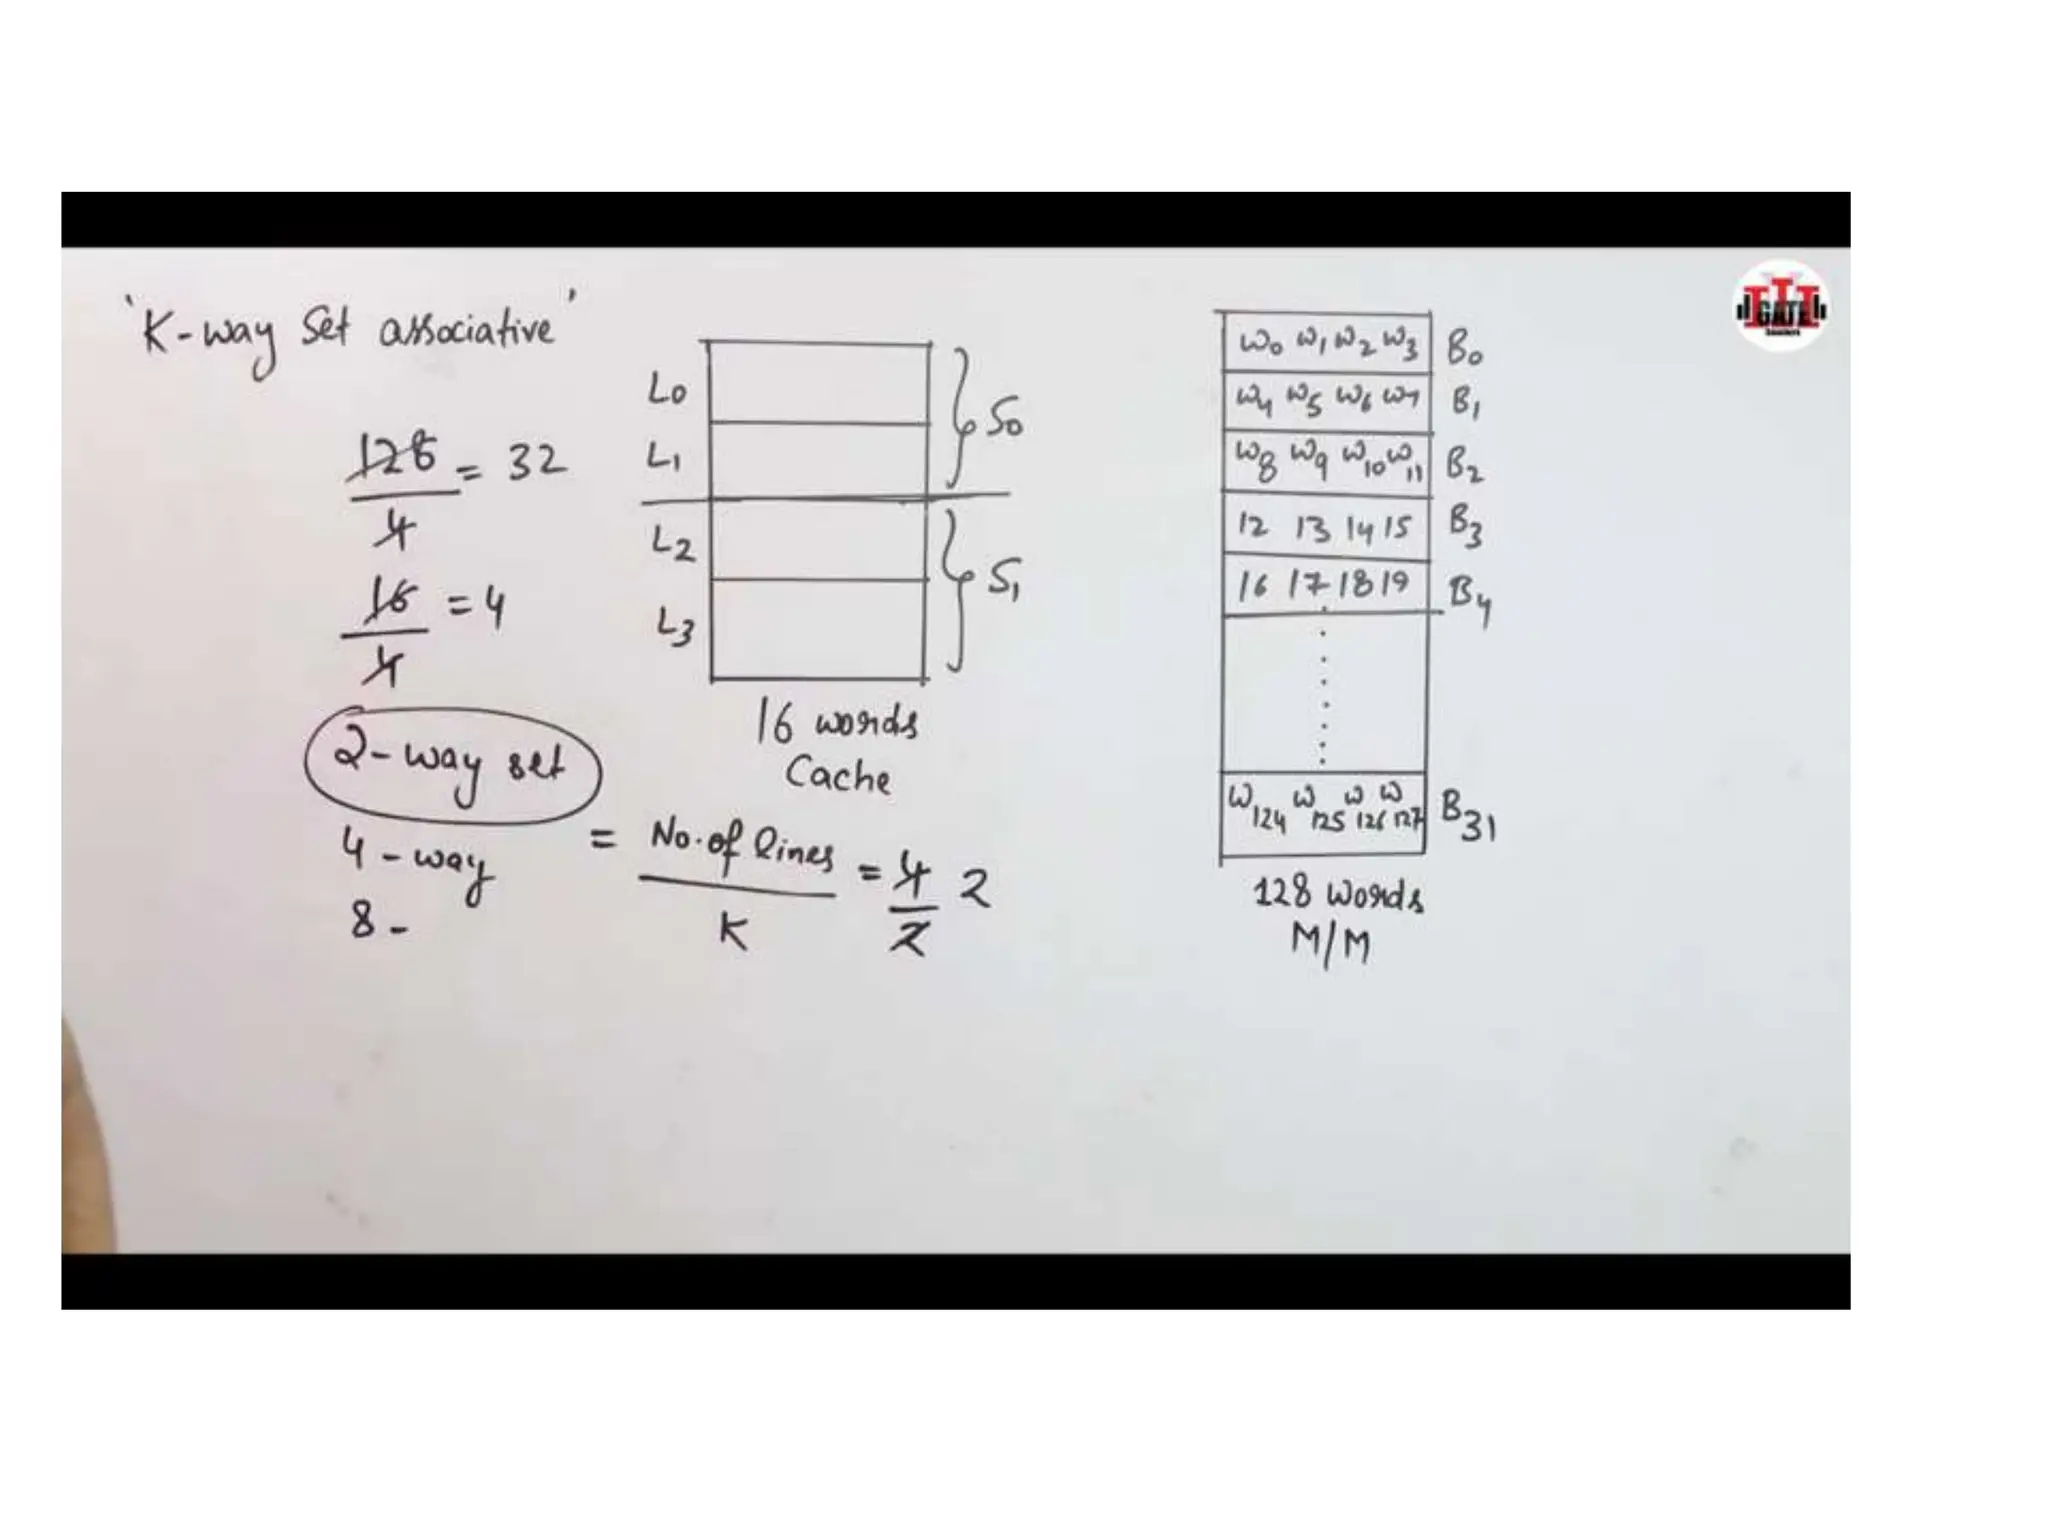 'K-way Set associative'
128/4 = 32
16/4 = 4
2-way set
4-way
8-
= No. of lines / K = 4/2 2
L0
L1
L2
L3
S0
S1
16 words
Cache
W0 W1 W2 W3 B0
W4 W5 W6 W7 B1
W8 W9 W10 W11 B2
12 13 14 15 B3
16 17 18 19 B4
W124 W125 W126 W127 B31
128 words
M/M
GATE